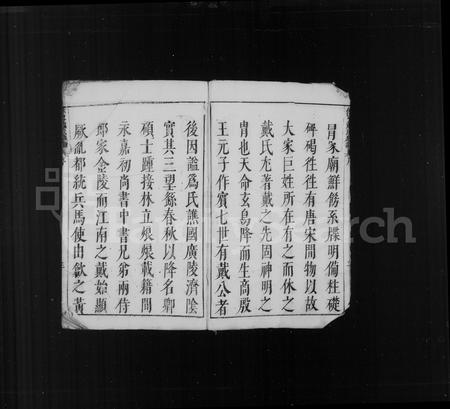 冐家廟鮮餝系牒明備柱礎
碑碣徃徃有唐宋間物以故
大家巨姓所在有之而休之
戴氏尤著戴之先固神明之
胄也天命玄鳥降而生商殷
王元子作賓七世有戴公者
後因謚爲氏譙國廣陵濟隂
實其三望餘春秋以降名卿
碩士踵接林立㸑㸑載籍間
永嘉初尚書中書兄弟兩侍
郎家金陵而江南之戴始顯
厥亂都統兵馬使由歙之黃